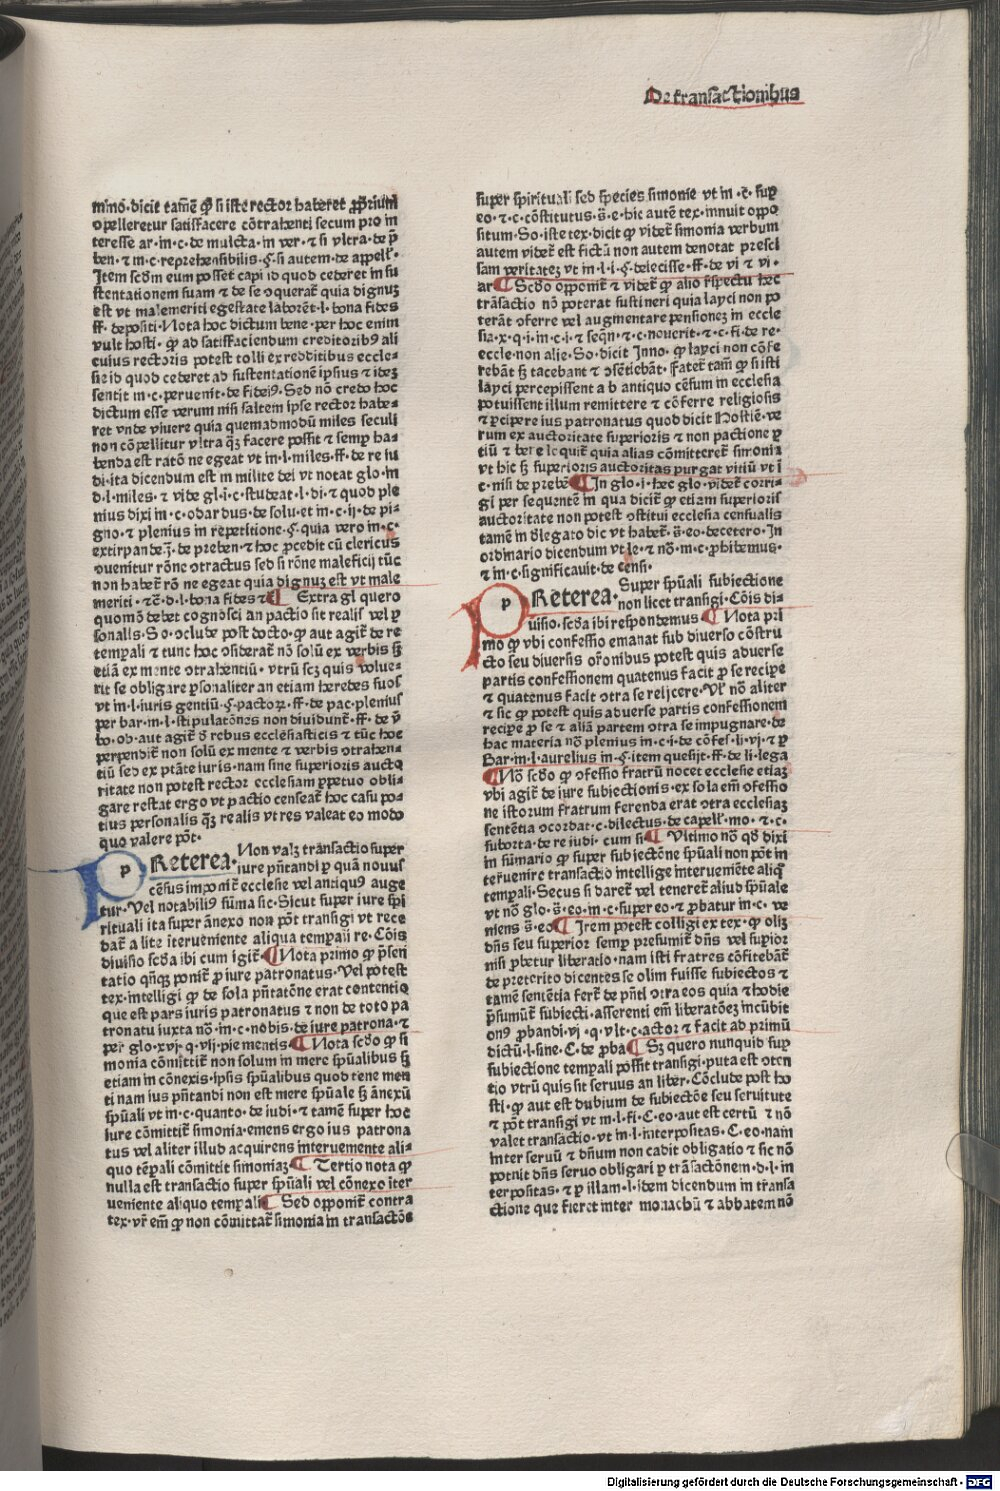 De transactionibus
mino·dicit tamē ꝙ si iste rector haberet ꝓprium
opelleretur satisfacere cōtrahenti secum pro in
teresse ar·in·c·de mulcta·in ver·⁊ si vltra·de p̄
ben·⁊ in·c·reprehensibilis·§·si autem·de appell̄·
Item scd̄m eum posset capi id quod cederet in su
stentationem suam ⁊ de se oquerat̄ quia dignuz
est vt malemeriti egestate laborēt·l·bona fides
ff·depositi·Nota hoc dictum bene·per hoc enim
vult hosti·ꝙ ad satisfaciendum creditorib⁹ ali
cuius rectoris potest tolli ex redditibus eccle-
sie id quod cederet ad sustentationē ipsius ⁊ idez
sentit in·c·peruenit·de fidei⁹·Sed nō credo hoc
dictum esse verum nisi saltem ipse rector habe-
ret vnde viuere quia quemadmodū miles seculi
non cōpellitur vltra qz̄ facere possit ⁊ semꝑ ha-
benda est ratō ne egeat vt in·l·miles·ff·de re iu
di·ita dicendum est in milite dei vt notat glo·in
d·l·miles·⁊ vide gl·i·c·studeat·l·di·⁊ quod ple
nius dixi in·c·odardus·de solu·et in·c·ij·de pi-
gno·⁊ plenius in repetitione·§·quia vero in·c·
extirpande·j̄·de preben·⁊ hoc ꝓcedit cū clericus
ouenitur rōne otractus sed si rōne maleficij tūc
non habet̄ rō ne egeat quia dignuz est vt male
meriti·⁊c̄·d·l·bona fides ⁊c̄ ¶ Extra gl quero
quomō debet cognosci an pactio sit realis vel ꝑ
sonalis·So·oclude post docto·ꝙ aut agit̄ de re
temꝑali ⁊ tunc hoc osiderat̄ nō solū ex verbis sz̄
etiā ex mente otrahentiū·vtrū scz quis volue-
rit se obligare ꝑsonaliter an etiam heredes suos
vt in·l·iuris gentiū·§·pactoꝝ·ff·de pac·plenius
per bar·in·l·stipulatōnes non diuidunt̄·ff·de v̄
bo·ob·aut agit̄ d̄ rebus ecclesiasticis ⁊ tūc hoc
perpendit̄ non solū ex mente ⁊ verbis otrahen-
tiū sed ex ptāte iuris·nam sine superioris aucto
ritate non potest rector ecclesiam ꝑpetuo obli-
gare restat ergo vt pactio censeat̄ hoc casu po-
tius personalis qz̄ realis vt res valeat eo modo
quo valere pōt·
PReterea· Non valz transactio super
iure pn̄tandi ꝑ quā nouus
cēsus imponit̄ ecclesie vel antiqu⁹ auge
tur·Vel notabili⁹ sūma sic·Sicut super iure sp̄i
rituali ita super ānexo non pōt transigi vt rece
dat̄ a lite iterueniente aliqua tempali re·Cōis
diuisio scd̄a ibi cum igit̄·¶ Nota primo ꝙ p̄sen
tatio qn̄qz ponit̄ ꝓ iure patronatus·Vel potest
tex·intelligi ꝙ de sola pn̄tatōne erat contentio
que est pars iuris patronatus ⁊ non de toto pa
tronatu iuxta nō·in·c·nobis·de iure patrona·⁊
per glo·xvj·q·vij·pie mentis ¶ Nota scd̄o ꝙ si
monia cōmittit̄ non solum in mere spūalibus sz̄
etiam in cōnexis·ipsis spūalibus quod tene men
ti nam ius pn̄tandi non est mere spūale sz̄ ānexū
spūali vt in·c·quanto·de iudi·⁊ tamē super hoc
iure cōmittit̄ simonia·emens ergo ius patrona
tus vel aliter illud acquirens interueniente ali-
quo tēpali cōmittit simoniaz ¶ Tertio nota ꝙ
nulla est transactio super spūali vel cōnexo iter
ueniente aliquo tempali ¶ Sed opponit̄ contra
tex·vr̄ em̄ ꝙ non cōmittat̄ simonia in transactōe
super spirituali sed species simonie vt in·c̄·suꝑ
eo·⁊·c·cōstitutus·s̄·e·hic autē tex·innuit oppo
situm·So·iste tex·dicit ꝙ videt̄ simonia verbum
autem videt̄ est fictū non autem denotat presci
sam veritatez vt in·l·i·§·deiecisse·ff·de vi ⁊ vi·
ar ¶ Scd̄o opponit̄ ⁊ videt̄ ꝙ alio r̄spectu hec
trāsactio nō poterat sustineri quia layci non po
terāt oferre vel augmentare pensionez in eccle
sia·x·q·i·in·c·i·⁊ seqn̄·⁊·c·nouerit·⁊·c·fi·de re·
eccle·non alie·So·dicit Inno·ꝙ layci non cōfe
rebāt sz̄ tacebant ⁊ osētiebāt·Fatet̄ tam̄ ꝙ si isti
layci percepissent ab antiquo cēsum in ecclesia
potuissent illum remittere ⁊ cōferre religiosis
⁊ ꝑcipere ius patronatus quod dicit Hostiē·ve
rum ex auctoritate superioris ⁊ non pactione ꝑ
tiū ⁊ bene loquit̄ quia alias cōmitteret̄ simonia
vt hic sz̄ superioris auctoritas purgat vitiū vt ī
c·nisi de prebē ¶ In glo·i·hec glo·videt̄ corri-
gi per sequentē in qua dicit̄ ꝙ etiam superioris
auctoritate non potest ostitui ecclesia censualis
tamē in d̄legato dic vt habet̄·s̄·eo·decetero·In
ordinario dicendum vt le·⁊ nō·in·c·ꝓhibemus·
⁊ in·c·significauit·de censi·
PReterea· Super spūali subiectione
non licet transigi·Cōis di-
uisio·scd̄a ibi respondemus ¶ Nota pri
mo ꝙ vbi confessio emanat sub diuerso cōstru
cto seu diuersis or̄onibus potest quis aduerse
partis confessionem quatenus facit ꝓ se recipe
⁊ quatenus facit otra se reijcere·Vl̄ nō aliter
⁊ sic ꝙ potest quis aduerse partis confessionem
recipe ꝓ se ⁊ aliā partem otra se impugnare·de
hac materia nō plenius in·c·i·de cōfes·li·vj·⁊ ꝑ
Bar·in·l·aurelius in·§·item quesijt·ff·de li·lega
¶ Nō scd̄o ꝙ ofessio fratrū nocet ecclesie etiaz
vbi agit̄ de iure subiectionis·ex sola em̄ ofessio
ne istorum fratrum ferenda erat otra ecclesiaz
sentētia ocordat·c·dilectus·de capell̄·mo·⁊·c·
suborta·de re iudi·cum si ¶ Vltimo nō qd̄ dixi
in sūmario ꝙ super subiectōne spūali non pōt in
teruenire transactio intellige interueniēte aliq̄
tempali·Secus si daret̄ vel teneret̄ aliud spūale
vt nō glo·s̄·eo·in·c·super eo·⁊ ꝓbatur in·c·ve
niens s̄·eo ¶ Item potest colligi ex tex·ꝙ oliz
dn̄s seu superior semꝑ presumit̄ dn̄s vel suꝑior
nisi ꝓbetur liberatio·nam isti fratres cōfitebāt̄
de preterito dicentes se olim fuisse subiectos ⁊
tamē sentētia fert̄ de pn̄ti otra eos quia ⁊ hodie
p̄sumūt̄ subiecti·asserenti em̄ liberatōez incūbit
on⁹ ꝓbandi·vj·q·vlt·c·actor ⁊ facit ad primū
dictū·l·sine·C·de ꝓba ¶ Sz quero nunquid suꝑ
subiectione tempali possit transigi·puta est oten
tio vtrū quis sit seruus an liber·Cōclude post ho
sti·ꝙ aut est dubium de subiectōe seu seruitute
⁊ pōt transigi vt in·l·fi·C·eo·aut est certū ⁊ nō
valet transactio·vt in·l·interpositas·C·eo·nam
inter seruū ⁊ dn̄um non cadit obligatio ⁊ sic nō
potuit dn̄s seruo obligari ꝑ trāsactōnem·d·l·in
terpositas·⁊ ꝑ illam·l·idem dicendum in trāsa
ctione que fieret inter monachū ⁊ abbatem nō
Digitalisierung gefördert durch die Deutsche Forschungsgemeinschaft · DFG